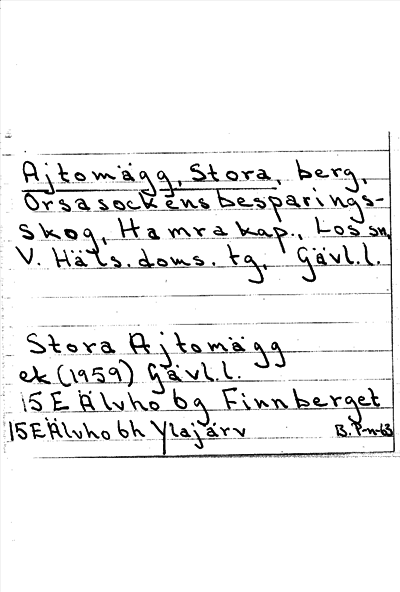 Ajtomägg, Stora, berg,
Orsa sockens besparings-
skog, Hamra kap., Los sn,
V. Häls. doms. tg, Gävl.l.
Stora Ajtomägg
ek (1959) Gävl.l.
15E Älvho 6g Finnberget
15E Älvho 6h Ylajärv
B. P-n-63